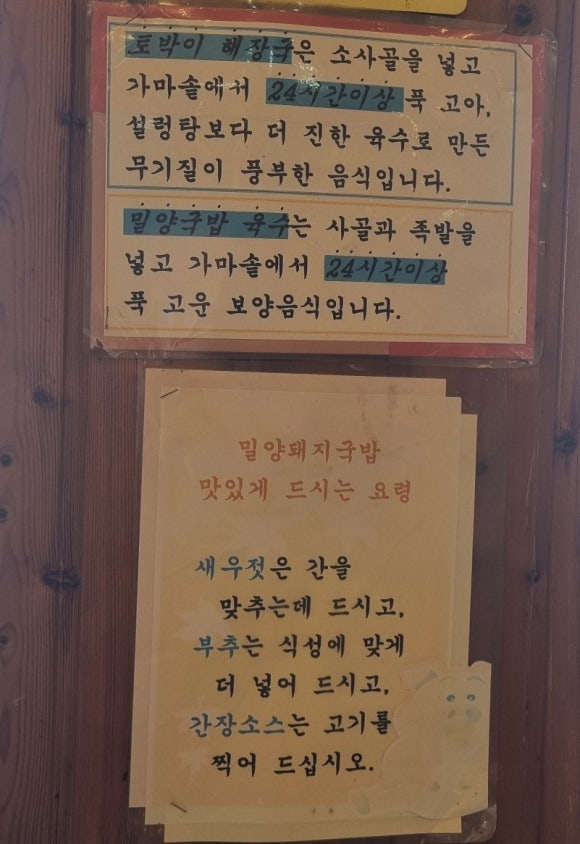 토박이 해장국은 소사골을 넣고
가마솥에서 24시간이상 푹 고아,
설렁탕보다 더 진한 육수로 만든
무기질이 풍부한 음식입니다.
밀양국밥 육수는 사골과 족발을
넣고 가마솥에서 24시간이상
푹 고운 보양음식입니다.
밀양돼지국밥
맛있게 드시는 요령
새우젓은 간을
맞추는데 드시고,
부추는 식성에 맞게
더 넣어 드시고,
간장소스는 고기를
찍어 드십시오.